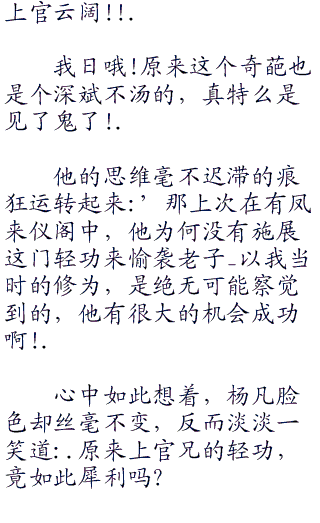 上官云阔!!.
我日哦!原来这个奇葩也
是个深斌不汤的，真特么是
见了鬼了!.
他的思维毫不迟滞的痕
狂运转起来:’那上次在有凤
来仪阁中，他为何没有施展
这门轻功来愉袭老子_以我当
时的修为，是绝无可能察觉
到的，他有很大的机会成功
啊!.
心中如此想着，杨凡脸
色却丝毫不变，反而淡淡一
笑道:.原来上官兄的轻功，
竟如此犀利吗?